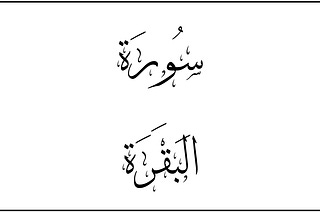 سُورَة
البَقَرَة